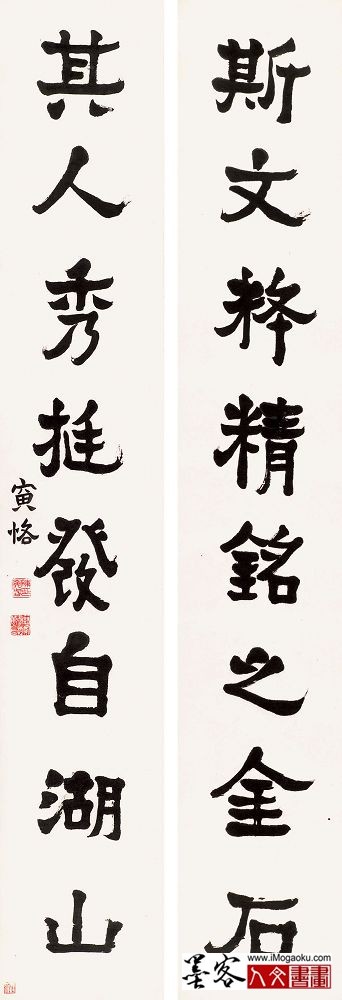 斯文粹精銘之金石
其人秀挺發自湖山
寅恪
墨客
www.iMogaoku.com
人文書畫